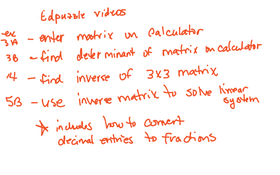 Edpuzzle videos
ex
3A - enter matrix on calculator
3B - find determinant of matrix on calculator
4 - find inverse of 3x3 matrix
5B - use inverse matrix to solve linear system
* includes how to convert
decimal entries to fractions